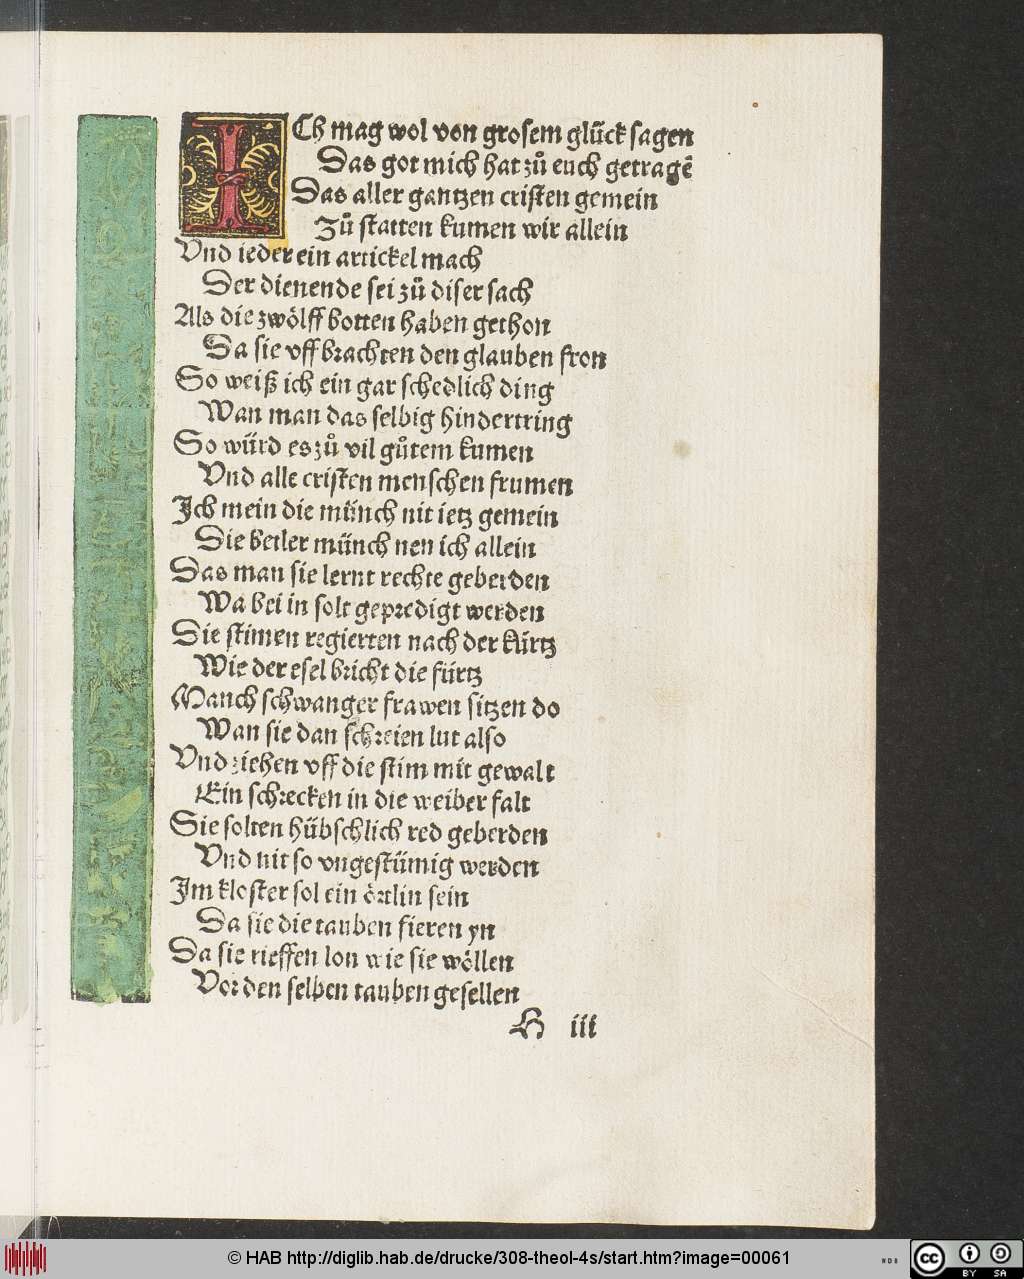 ICh mag wol von grosem glück sagen
Das got mich hat zů euch getragẽ
Das aller gantzen cristen gemein
Zů statten kumen wir allein
Vnd ieder ein artickel mach
Der dienende sei zů diser sach
Als die zwölff botten haben gethon
Da sie vff brachten den glauben fron
So weiß ich ein gar schedlich ding
Wan man das selbig hindertring
So würd es zů vil gůtem kumen
Vnd alle cristen menschen frumen
Ich mein die münch nit ietz gemein
Die betler münch nen ich allein
Das man sie lernt rechte geberden
Wa bei in solt gepredigt werden
Die stimen regierten nach der kürtz
Wie der esel bricht die fürtz
Manch schwanger frawen sitzen do
Wan sie dan schreien lut also
Vnd ziehen vff die stim mit gewalt
Ein schrecken in die weiber falt
Sie solten hübschlich red geberden
Vnd nit so vngestümig werden
Im kloster sol ein örtlin sein
Da sie die tauben fieren yn
Da sie rieffen lon wie sie wöllen
Vor den selben tauben gesellen
H iii
© HAB http://diglib.hab.de/drucke/308-theol-4s/start.htm?image=00061
WDB
CC BY SA